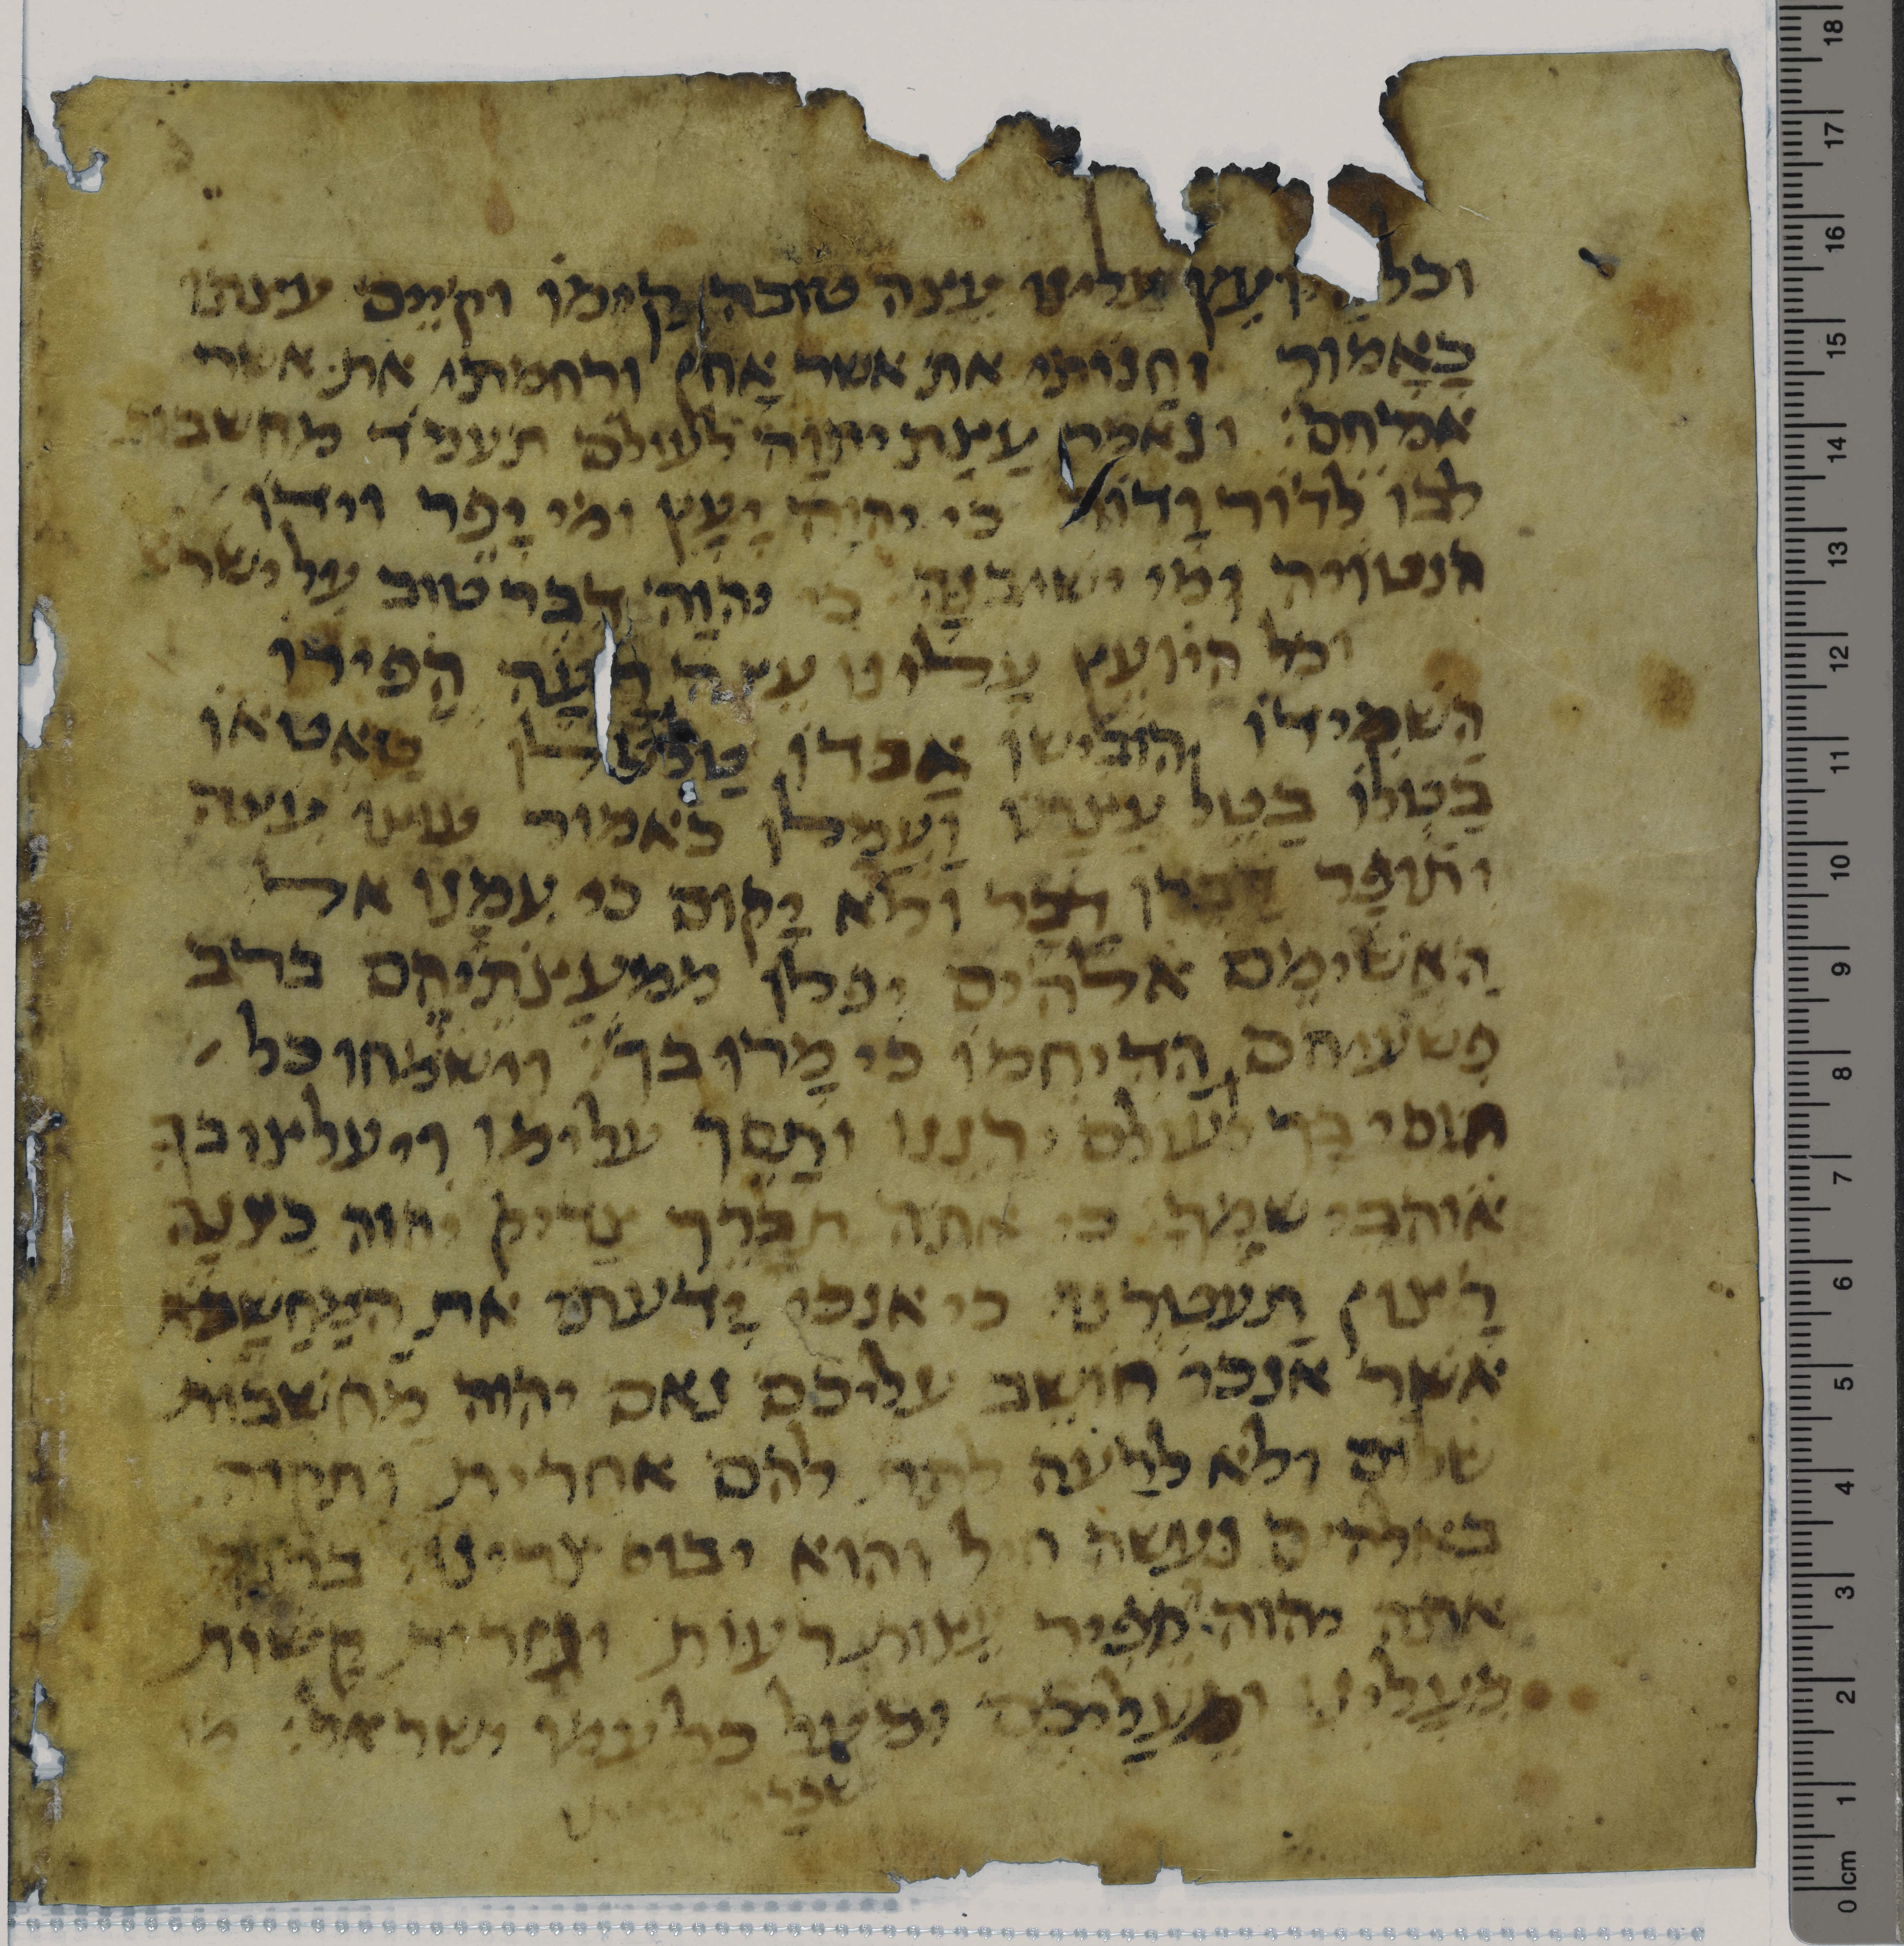 וכל היועץ עלינו עצה טובה קיימו וקיים עצתו
כאמור וחנותי את אשר אחן ורחמתי את אשר
ארחם ונאמר עצת יהוה לעולם תעמד מחשבות
לבו לדור ודור כי יהוה יעץ ומי יפר וידו
הנטויה ומי ישיבנה כי יהוה דבר טוב על ישרא
וכל היועץ עלינו עצה רעה הפירו
השמידו הובישו אבדו טלטלו טאטאו
בטלו בטל עצתו ועמלו כאמור עוצו עצה
ותופר דברו דבר ולא יקום כי עמנו אל
האשימם אלהים יפלו ממעצתיהם ברב
פשעיהם הדיחמו כי מרו בך וישמחו כל
חוסי בך לעולם ירננו ותסך עלימו ויעלצו בך
אוהבי שמך כי אתה תברך צדיק יהוה כצנה
רצון תעטרנו כי אנכי ידעתי את המחשבת
אשר אנכי חושב עליכם נאם יהוה מחשבות
שלום ולא לרעה לתת להם אחרית ותקוה
באלהים נעשה חיל והוא יבוס צרינו
אתה יהוה תפיר עצות רעות וגזרות קשות
מעלינו ומעליכם ומעל כל עמו ישראל